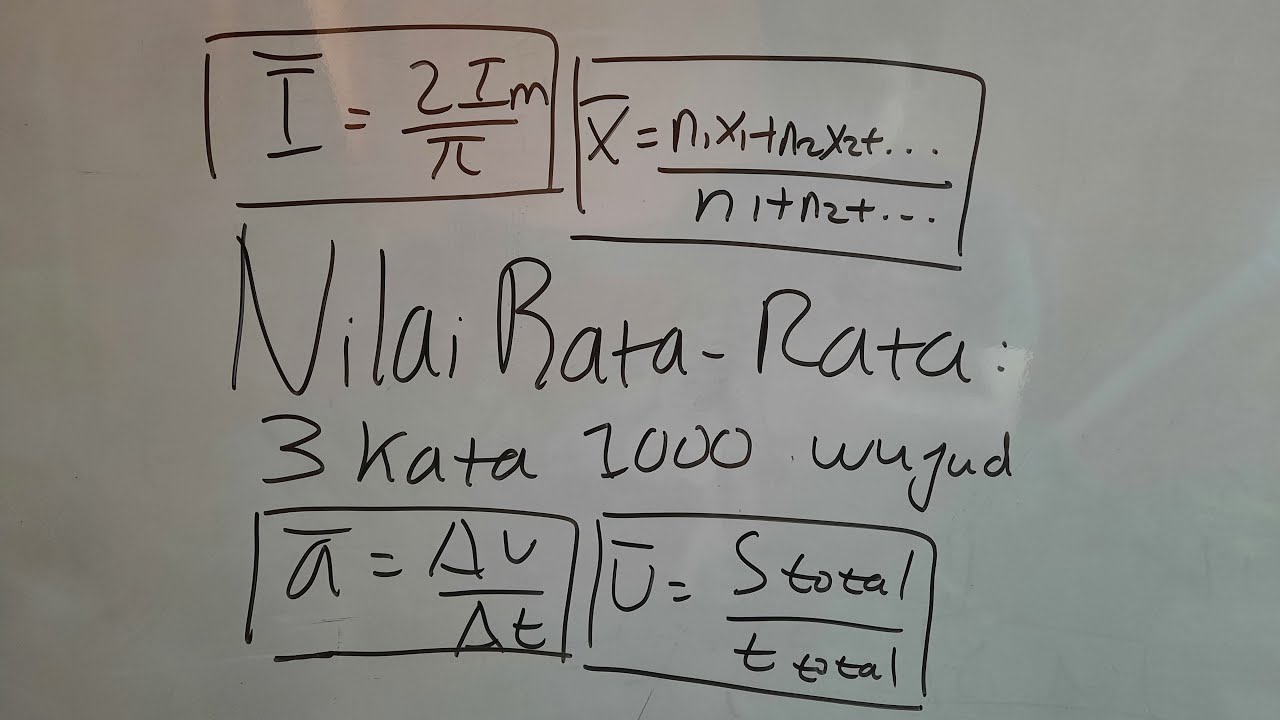 Ī = 2Im/π
x̄ = n₁x₁+n₂x₂+.../n₁+n₂+...
Nilai Rata-Rata:
3 Kata 1000 wujud
ā = Δv/Δt
v̄ = Stotal/ttotal